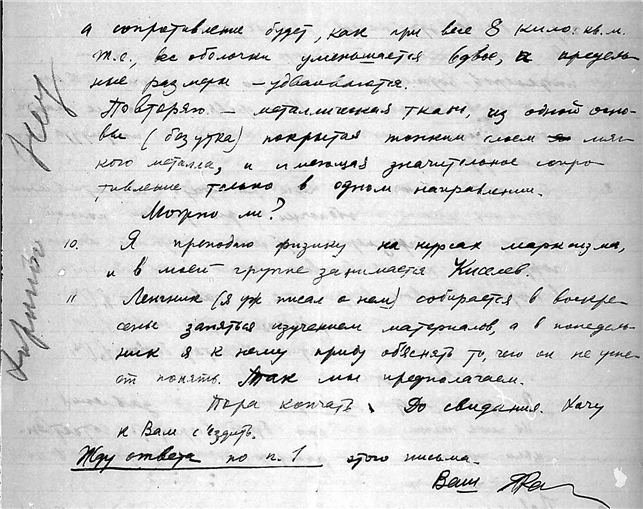 а сопротивление будет, как при весе 8 кило. кв. м.
т.е., вес оболочки уменьшается вдвое, а предель-
ные размеры — удваиваются.
Повторяю — металлическая ткань, из одной осно-
вы (без утка) покрытая тонким слоем мяг-
кого металла, и имеющая значительное сопро-
тивление только в одном направлении.
Можно ли?
10. Я преподаю физику на курсах марксизма,
и в моей группе занимается Киселев.
11 Ленгник (я уж писал о нем) собирается в воскре-
сенье заняться изучением материалов, а в понедель-
ник я к нему приду объяснять то, чего он не суме-
ет понять. Так мы предполагаем.
Пора кончать. До свидания. Хочу
к Вам съездить.
Жду ответа по п. 1 этого письма.
Ваш